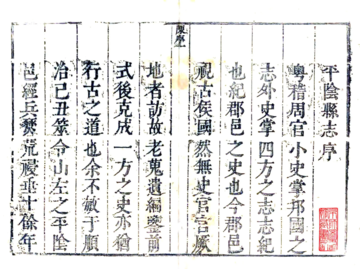 平陰縣志序
粵稽周官小史掌邦國之
志外史掌四方之志志紀
也紀郡邑之史也今郡邑
視古侯國然無史官官厥
地者訪故老蒐遺編鑒前
式後克成一方之史亦猶
行古之道也余不敏于順
治己丑筮令山左之平陰
邑經兵燹荒祲垂十餘年